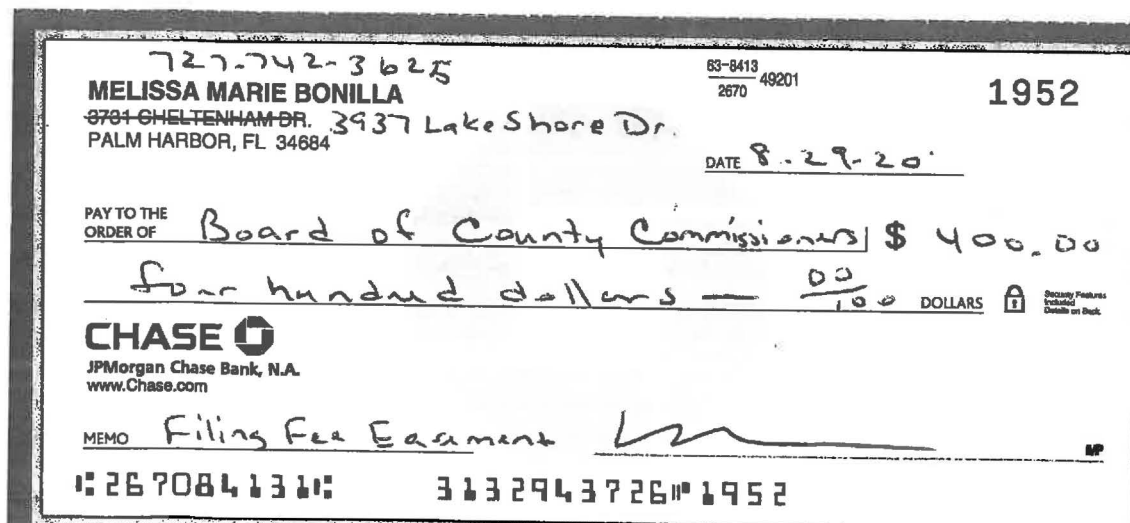 727-742-3625
MELISSA MARIE BONILLA
3731 CHELTENHAM DR. 3937 Lake Shore Dr.
PALM HARBOR, FL 34684
63-8413
2670 49201
1952
DATE 8-29-20
PAY TO THE
ORDER OF Board of County Commissioners $ 400.00
four hundred dollars — 00/100 DOLLARS
Security Features
Included
Details on Back.
CHASE
JPMorgan Chase Bank, N.A.
www.Chase.com
MEMO Filing Fee Easement
MP
⑆267084131⑆ 3132943726⑈1952